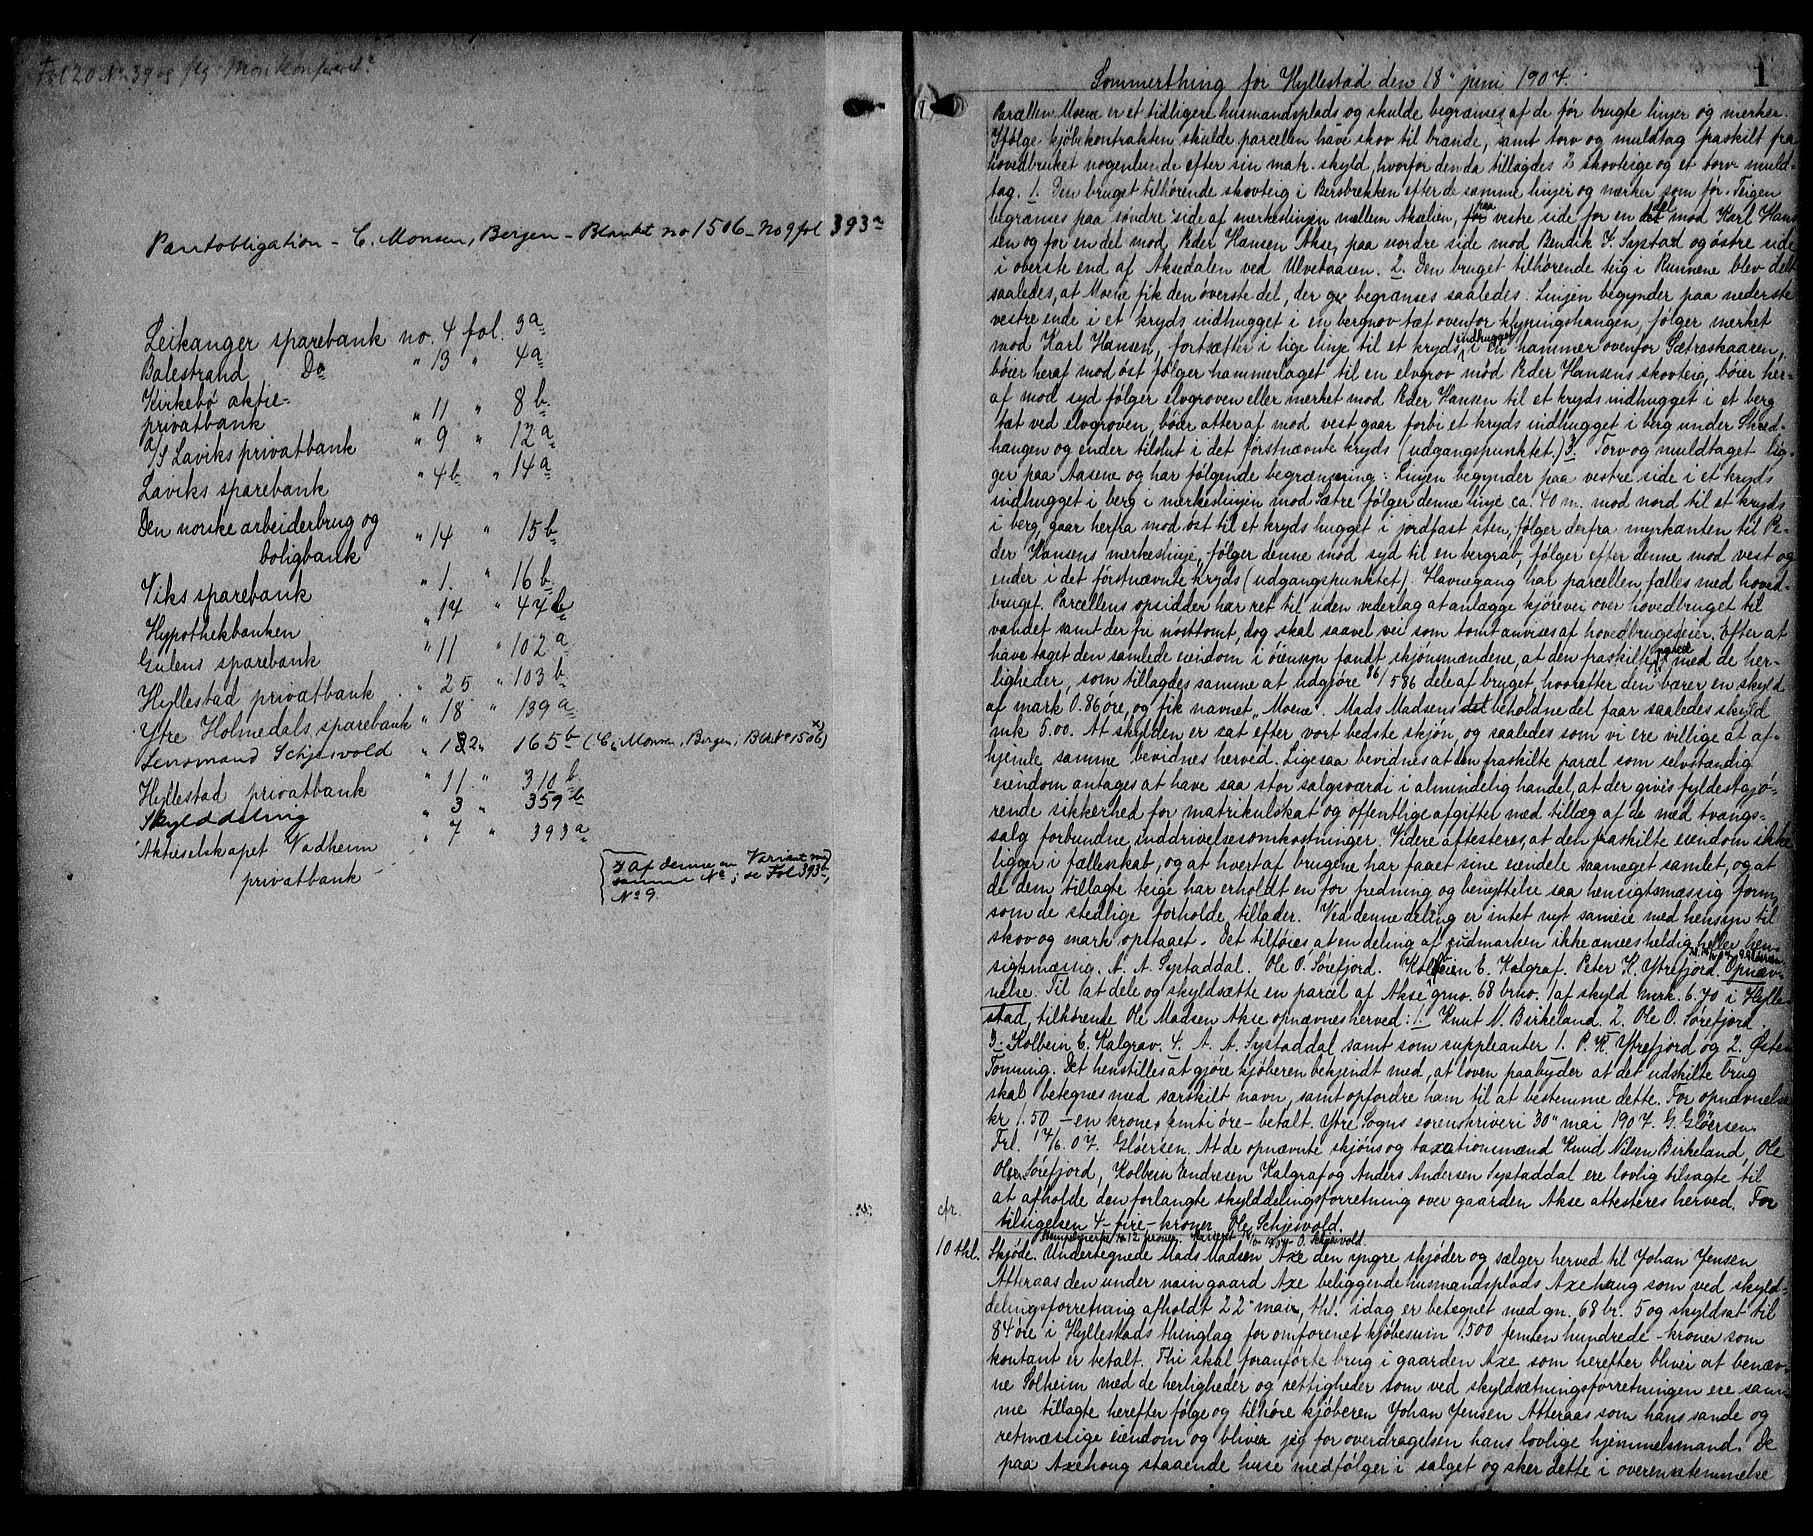 Pantobligation – C. Monsen, Bergen – Blankt no 1506 – No 9 fol 393a
Leikanger sparebank no. 4 fol. 3a
Balestrand Do " 13 " 4a
Kirkebö aktie-
privatbank " 11 " 8b
A/S Laviks privatbank " 9 " 12a
Laviks sparebank " 4b " 14a
Den norske arbeiderbrug og
boligbank " 14 " 15b
Viks sparebank " 1. " 16b
Hypothekbanken " 14 " 44b
Gulens sparebank " 11 " 102a
Hyllestad privatbank " 25 " 103b
Ytre Holmedals sparebank " 18 " 139a
Lensmand Schjesvold " 132 " 165b (C. Monsen, Bergen, Blkt no 1506) x)
Hyllestad privatbank " 11 " 310b
Skylddeling " 3 " 359b
Aktieselskapet Vadheim " 7 " 393a
privatbank
x) Af denne en Variant med
samme No; se Fol 393a,
No 9.
Sommerthing for Hyllestad den 18 juni 1907.
1
Parcellen Moene er et tidligere husmandsplads og skulde begrænses af de før brugte linjer og merker.
Ifølge kjøbekontrakten skulde parcellen have skov til brænde, samt torv og muldtag fraskilt fra
hovedbruket nogenlunde efter sin matr. skyld, hvorfor den da tillagdes 2 skovteige og et torv- muld-
tag. 1. Den bruget tilhørende skovteig i Bersbrekken efter de samme linjer og mærker som før. Teigen
begrænses paa søndre side af merkeslinjen mellem Akselien, paa vestre side for en del mod Karl Han-
sen og for en del mod Peder Hansen Akse, paa nordre side mod Bendik J. Systad og østre side
i øverste end af Aksedalen ved Ulvetaasen. 2. Den bruget tilhørende teig i Runnene blev delt
saaledes, at Moene fik den øverste del, der begrænses saaledes: Linjen begynder paa nederste
vestre ende i et kryds indhugget i en bergnov tæt ovenfor Klypingshangen, følger merket
mod Karl Hansen, fortsætter i lige linje til et kryds indhugget i en hammer ovenfor Sætraskaaren,
bøier heraf mod øst følger hammerlaget til en elvgrov mod Peder Hansens skovteig, bøier her-
af mod syd følger elvgroven eller merket mod Peder Hansen til et kryds indhugget i et berg
tæt ved elvgroven, bøier atter af mod vest gaar forbi et kryds indhugget i berg under Skred-
hangen og ender tilslut i det førstnævnte kryds (udgangspunktet.) 3. Torv og muldtaget lig-
ger paa Aasene og har følgende begrænsning: Linjen begynder paa vestre side i et kryds
indhugget i berg i merkeslinjen mod Sætre følger denne linje ca. 40 m. mod nord til et kryds
i berg, gaar herfra mod øst til et kryds hugget i jordfast sten, følger derfra myrkanten til Pe-
der Hansens merkeslinje, følger denne mod syd til en bergrab, følger efter denne mod vest og
ender i det førstnævnte kryds (udgangspunktet). Havnegang har parcellen fælles med hoved-
bruget. Parcellens opsidder har ret til uden vederlag at anlægge kjørevei over hovedbruget til
vandet samt der fri nøsttomt, dog skal saavel vei som tomt anvises af hovedbrugets eier. Efter at
have taget den samlede eiendom i øiensyn fandt skjønsmændene, at den fraskilte parcel med de her-
ligheder, som tillagdes samme at udgjøre 86/586 dele af bruget, hvorefter den bærer en skyld
af mark 0.86 øre, og fik navnet „Moene". Mads Madsens beholdne del faar saaledes skyld
mk 5.00. At skylden er sat efter vort bedste skjøn, og saaledes som vi ere villige at af-
hjemle samme bevidnes herved. Ligesaa bevidnes at den fraskilte parcel som selvstændig
eiendom antages at have saa stor salgsværdi i almindelig handel, at der gives fyldestgjø-
rende sikkerhed for matrikulskat og offentlige afgifter med tillæg af de med tvangs-
salg forbundne inddrivelsesomkostninger. Videre attesteres, at den fraskilte eiendom ikke
ligger i fællesskab, og at hvert af brugene har faaet sine eiendele saameget samlet, og at
de dem tillagte teige har erholdt en for fredning og benyttelse saa hensigtsmæssig form,
som de stedlige forholde tillader. Ved denne deling er intet nyt sameie med hensyn til
skov og mark opstaaet. Det tilføies, at en deling af udmarken ikke ansees heldig heller hen-
sigtsmæssig. A. A. Systaddal. Ole O. Sørefjord. Kolbein E. Kalgraf. Peter K. Ytrefjord. Opnæv-
nelse. Til at dele og skyldsætte en parcel af Akse grno. 68 brno. 1 af skyld mrk. 6.70 i Hylle-
stad, tilhørende Ole Madsen Akse opnævnes herved: 1. Knut N. Birkeland. 2. Ole O. Sørefjord.
3. Kolbein E. Kalgrav. 4. A. A. Systaddal samt som suppleanter 1. P. K. Ytrefjord og 2. Østen
Tønning. Det henstilles at gjøre kjøberen bekjendt med, at loven paabyder at det udskilte brug
skal betegnes med særskilt navn, samt opfordre ham til at bestemme dette. For opnævnelse
kr 1.50 – en krone femti øre – betalt. Ytre Sogns sorenskriveri 30 mai 1907. G. Gløersen.
Frl. 14/6 07. Gløersen. At de opnævnte skjøns og taxationsmænd Knud Nilsen Birkeland, Ole
Olsen Sørefjord, Kolbein Endresen Kalgraf og Anders Andersen Systaddal ere lovlig tilsagte til
at afholde den forlangte skylddelingsforretning over gaarden Akse attesteres herved. For
cfr. tilsigelsen 4 – fire – kroner. Ole Schjesvold.
10 thl. Skjøde. Undertegnede Mads Madsen Axe den yngre skjøder og sælger herved til Johan Jensen
Atteraas den under nain gaard Axe beliggende husmandsplads Axehaug som ved skyld-
delingsforretning afholdt 22 mai, thl. idag er betegnet med gn. 68 br. 5 og skyldsat til
84 øre i Hyllestads thinglag for omforenet kjøbesum 1500 femten hundrede kroner som
kontant er betalt. Thi skal foranførte brug i gaarden Axe, som herefter bliver at benæv-
ne Solheim med de herligheder og rettigheder som ved skyldsætningsforretningen ere sam-
me tillagte herefter følge og tilhøre kjøberen Johan Jensen Atteraas som hans sande og
retmæssige eiendom og bliver jeg for overdragelsen hans lovlige hjemmelsmand. De
paa Axehoug staaende huse medfølger i salget og sker dette i overensstemmelse